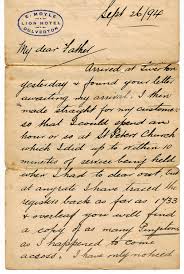 E. MOYLE
LION HOTEL
DULVERTON
Sept 26/94
My dear Father
Arrived at Tiverton
yesterday & found your letter
awaiting my arrival. I then
made straight for my customer
so that I could spend an
hour or so at St Peters Church
which I did up to within 10
minutes of service being held
when I had to clear out, but
at anyrate I have traced the
register back as far as 1733
& overleaf you will find
a copy of as many
as I happened to come
across. I have only noticed